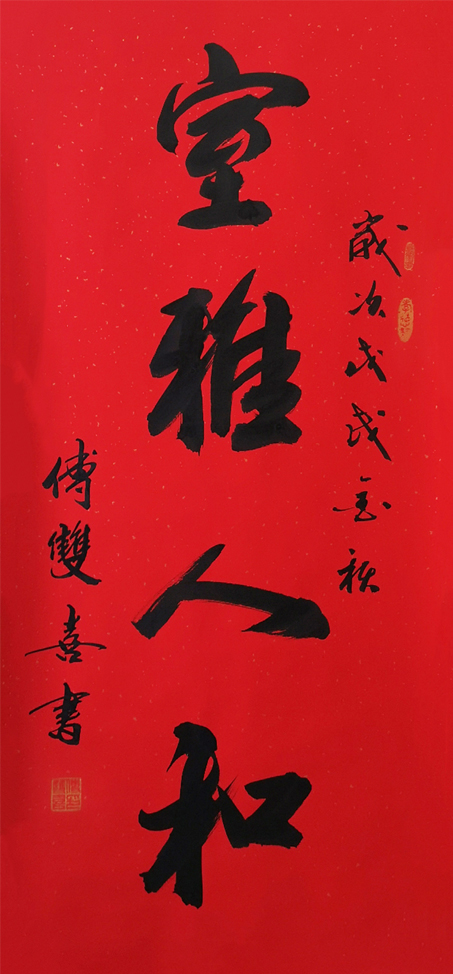 歲次戊戌金秋
室雅人和
傅雙喜書